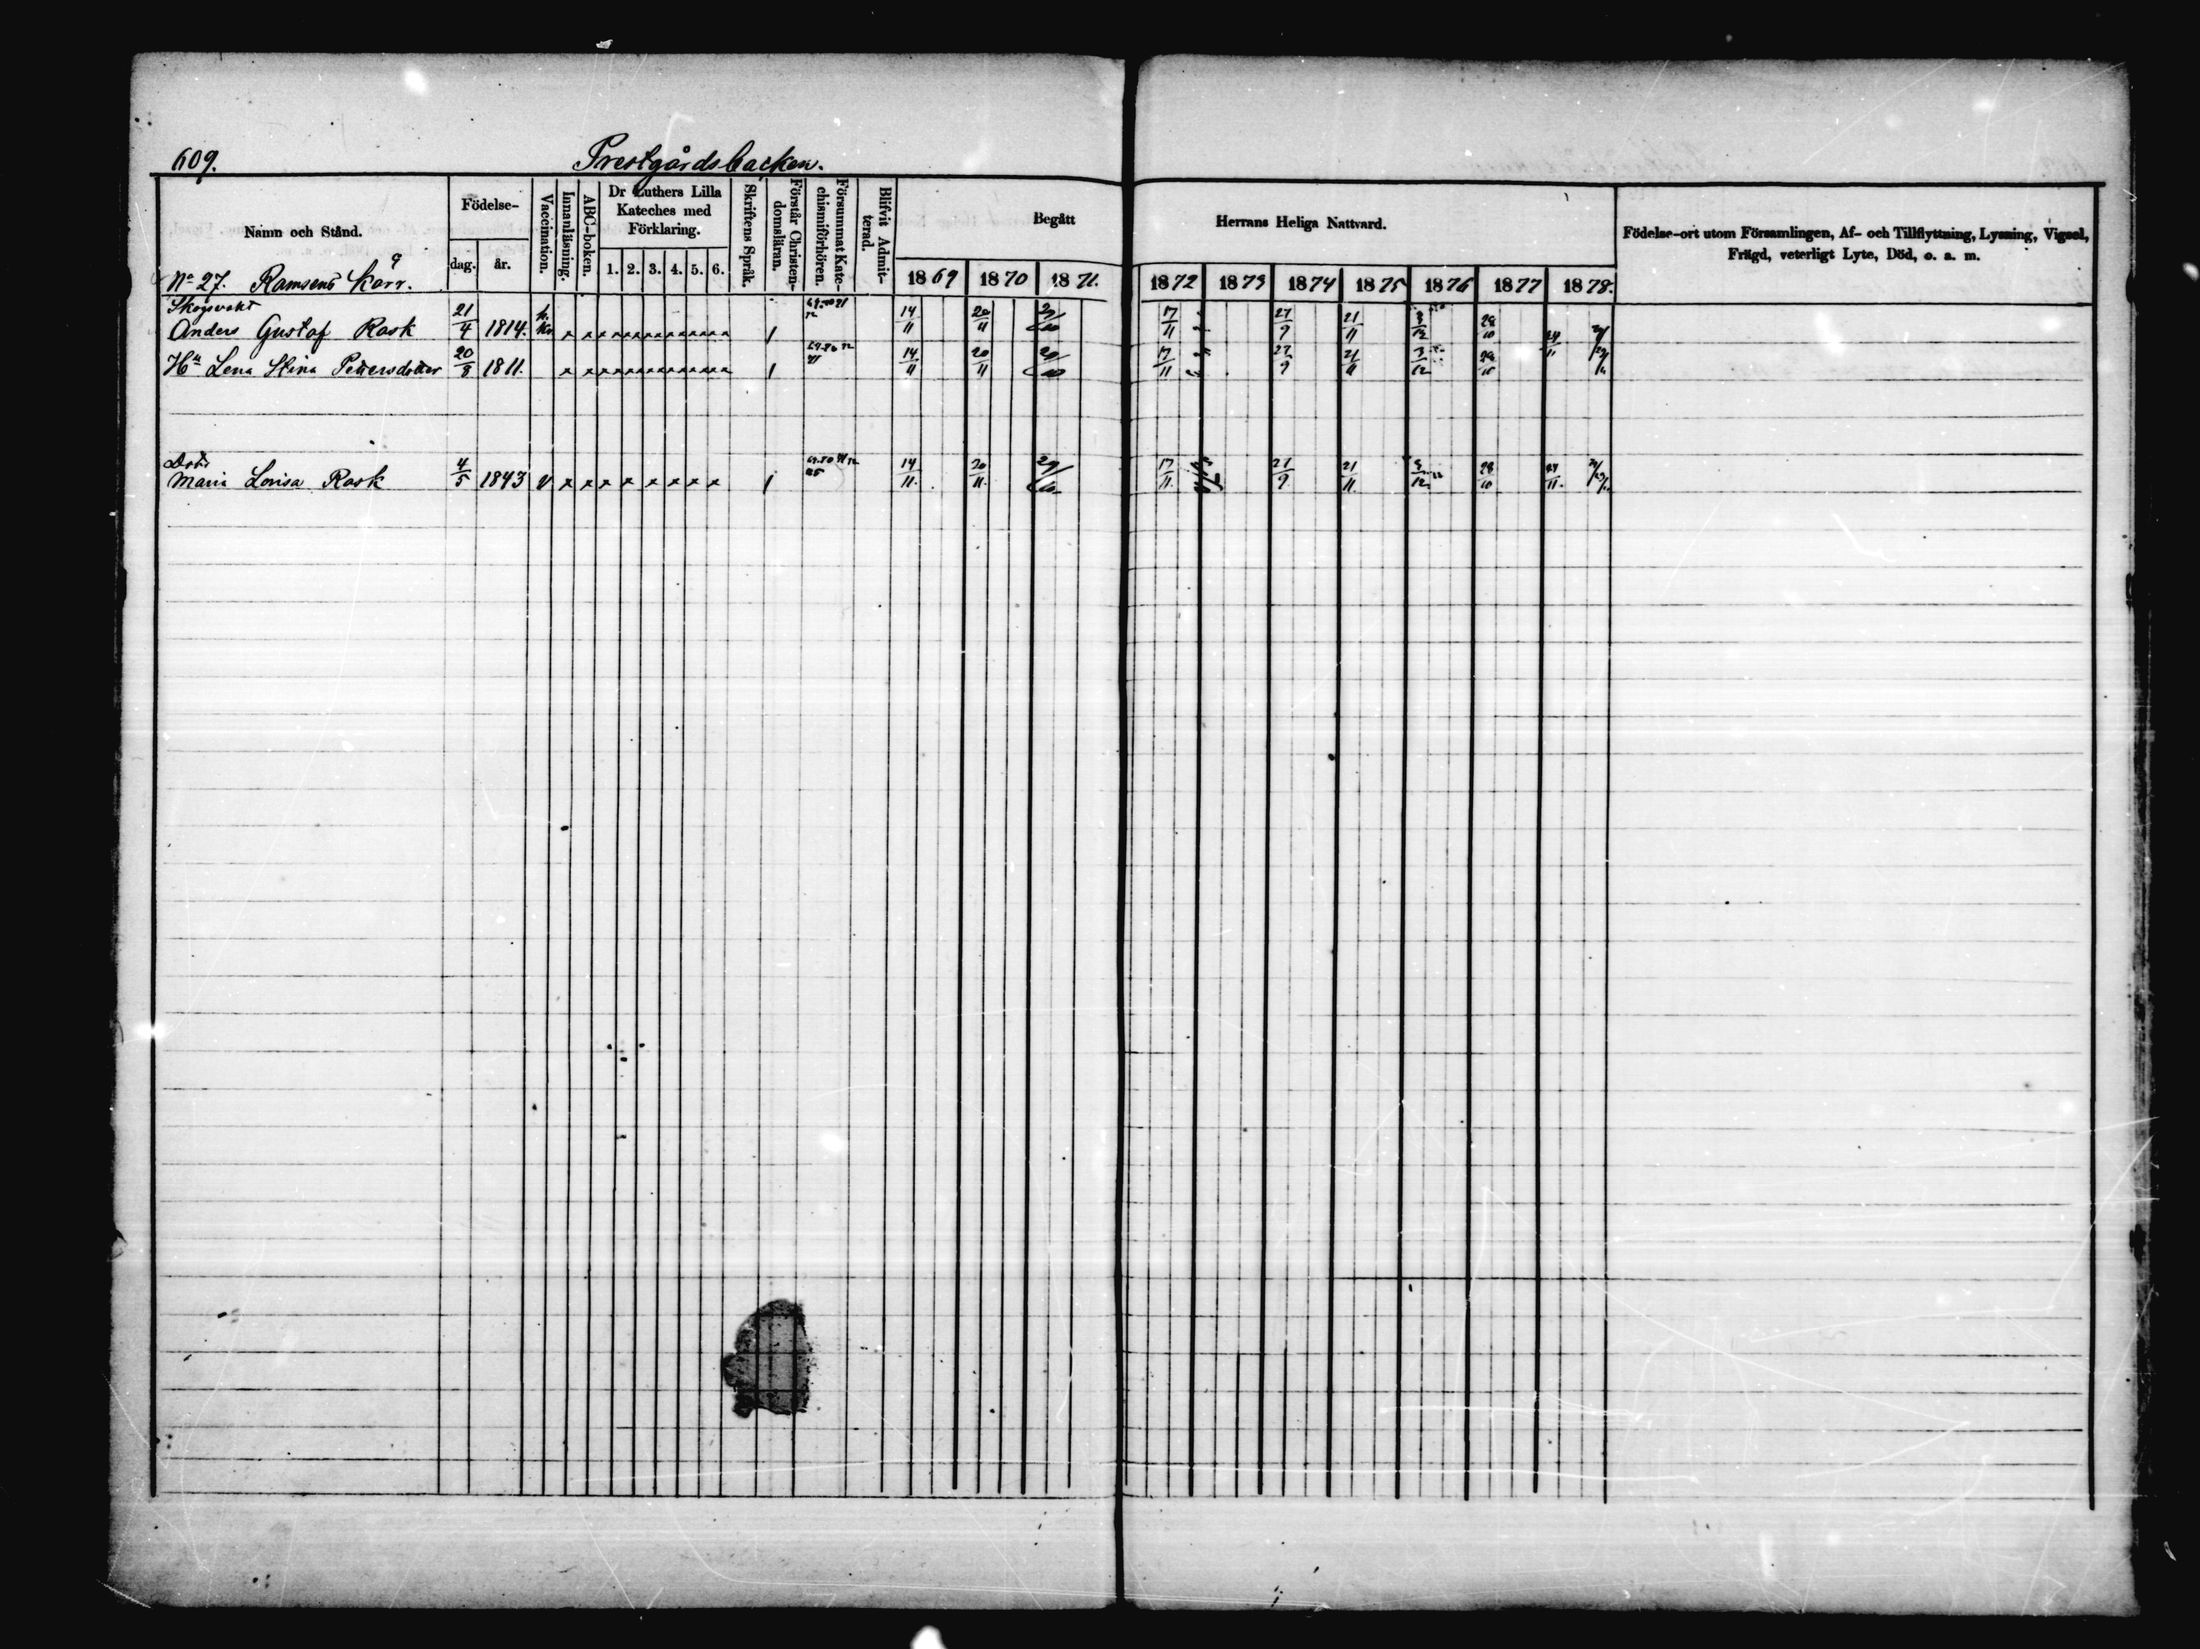 609. Prestgårdsbacken.
Namn och Stånd.
Födelse-
dag. år.
Vaccination.
Innanläsning.
ABC-boken.
Dr Luthers Lilla
Kateches med
Förklaring.
1. 2. 3. 4. 5. 6.
Skriftens Språk.
Förstår Christen-
domsläran.
Försummat Kate-
chismiförhören.
Blifvit Admit-
terad.
Begått
Herrans Heliga Nattvard.
1869 1870 1871.
1872 1873 1874 1875 1876 1877 1878.
Födelse-ort utom Församlingen, Af- och Tillflyttning, Lysning, Vigsel,
Frägd, veterligt Lyte, Död, o. a. m.
No 27. Ramsens Karr.
Skogsvakt
Anders Gustaf Rask 21/4 1814. 14/11 20/11 17/11 27/9 21/11 3/12 28/10 24/11
Hu Lena Stina Pettersdotter 20/8 1811. 14/11 20/11 17/11 27/9 21/11 3/12 28/10
Dotr
Maria Lovisa Rask 4/5 1843 v 14/11. 20/11. 17/11. 27/9. 21/11. 3/12 28/10 24/11.